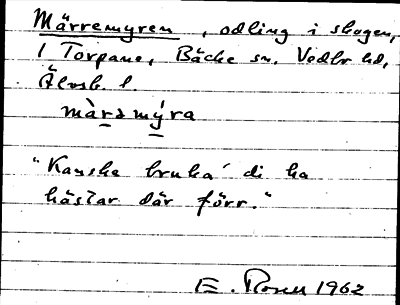 Märremyren, odling i skogen,
1 Torpane, Bäcke sn, Vedbo hd,
Älvsb. l.
màrəmýra
"Kanske bruka' di ha
hästar där förr."
E. Rosen 1962